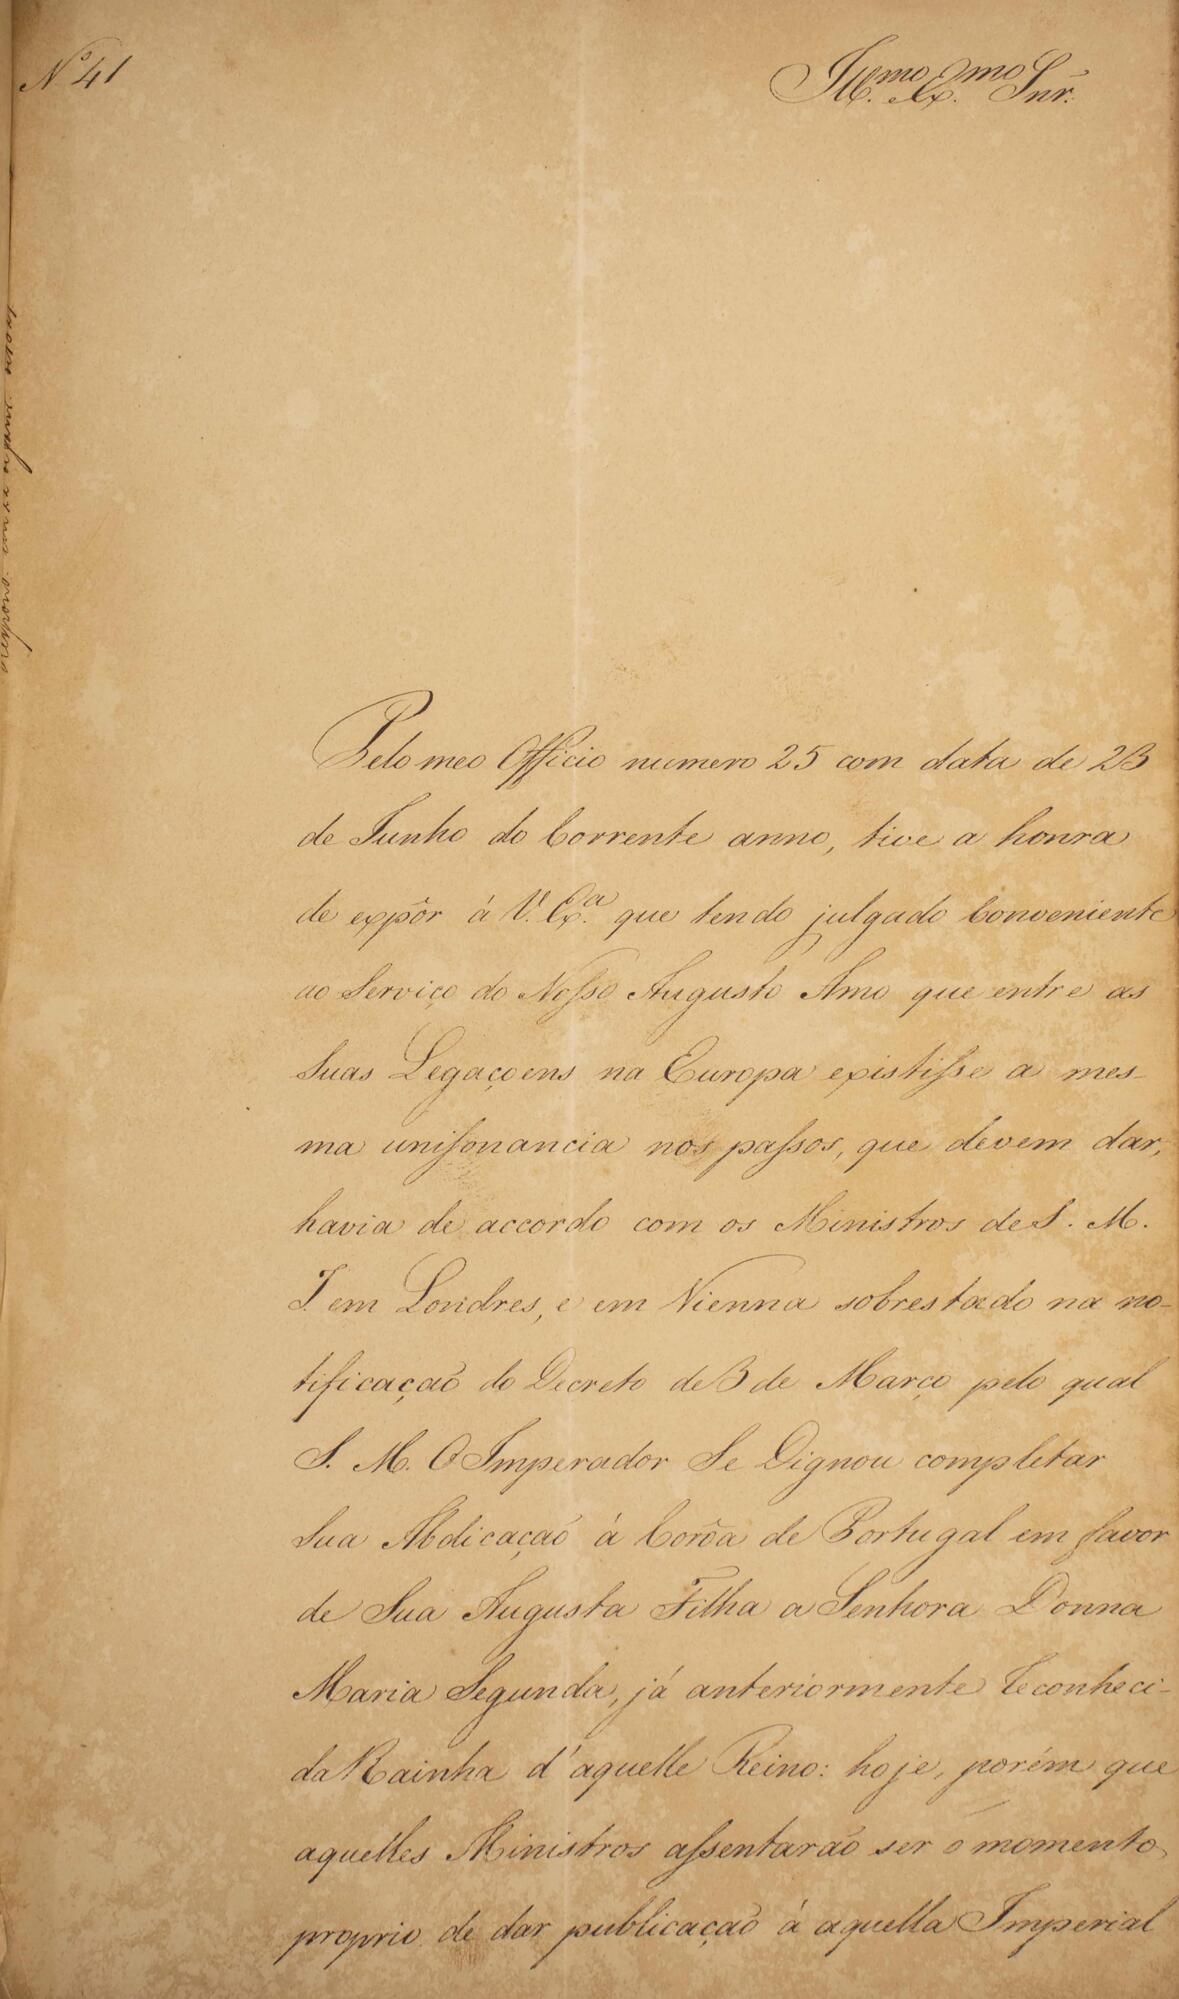 Nº 41
Ill.mo Ex.mo Snr.
Pelo meo Officio numero 25 com data de 23
de Junho do Corrente anno, tive a honra
de expôr à V. Ex.a que tendo julgado Conveniente
ao Serviço do Nosso Augusto Amo que entre as
Suas Legaçoens na Europa existisse a mes-
ma unisonancia nos passos, que devem dar,
havia de accordo com os Ministros de S. M.
I. em Londres, e em Vienna sobrestado na no-
tificaçaõ do Decreto de 3 de Março pelo qual
S. M. O Imperador Se Dignou completar
Sua Abdicaçaõ à Corôa de Portugal em favor
de Sua Augusta Filha a Senhora Donna
Maria Segunda, já anteriormente Reconheci-
da Rainha d'aquelle Reino: hoje, porém que
aquelles Ministros assentaraõ ser o momento
proprio de dar publicaçaõ à aquella Imperial